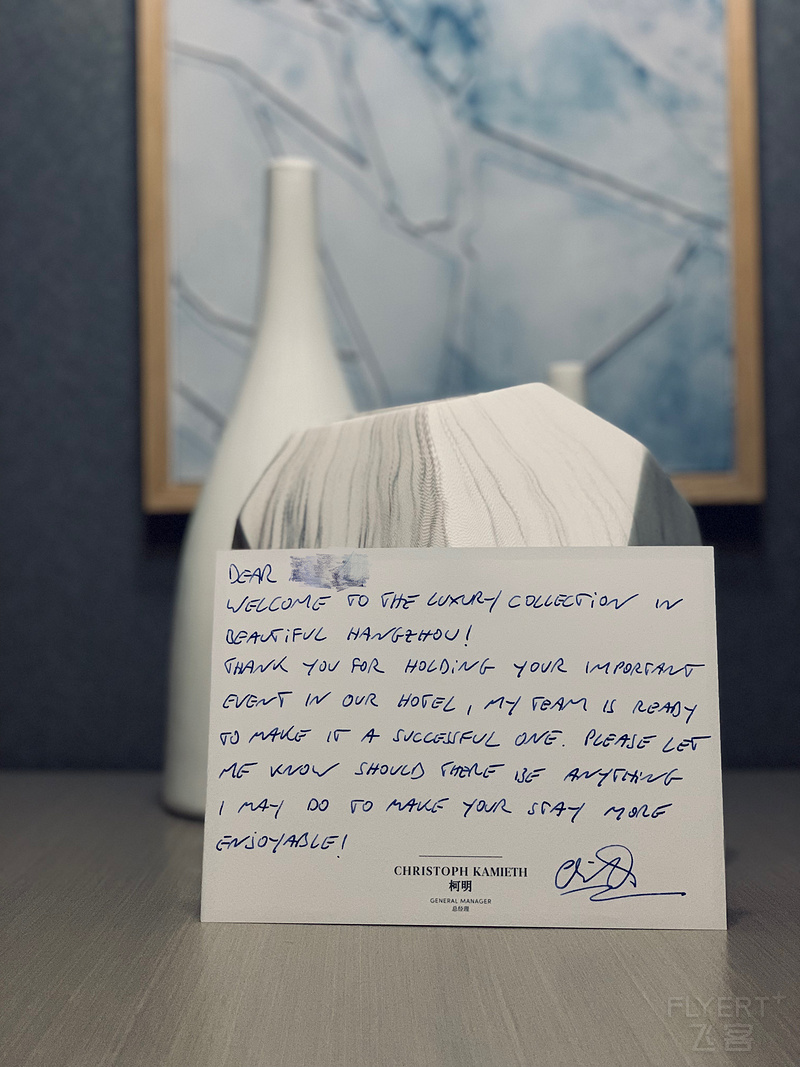 DEAR
WELCOME TO THE LUXURY COLLECTION IN
BEAUTIFUL HANGZHOU!
THANK YOU FOR HOLDING YOUR IMPORTANT
EVENT IN OUR HOTEL, MY TEAM IS READY
TO MAKE IT A SUCCESSFUL ONE. PLEASE LET
ME KNOW SHOULD THERE BE ANYTHING
I MAY DO TO MAKE YOUR STAY MORE
ENJOYABLE!
CHRISTOPH KAMIETH
柯明
GENERAL MANAGER
总经理
FLYERT+
飞客